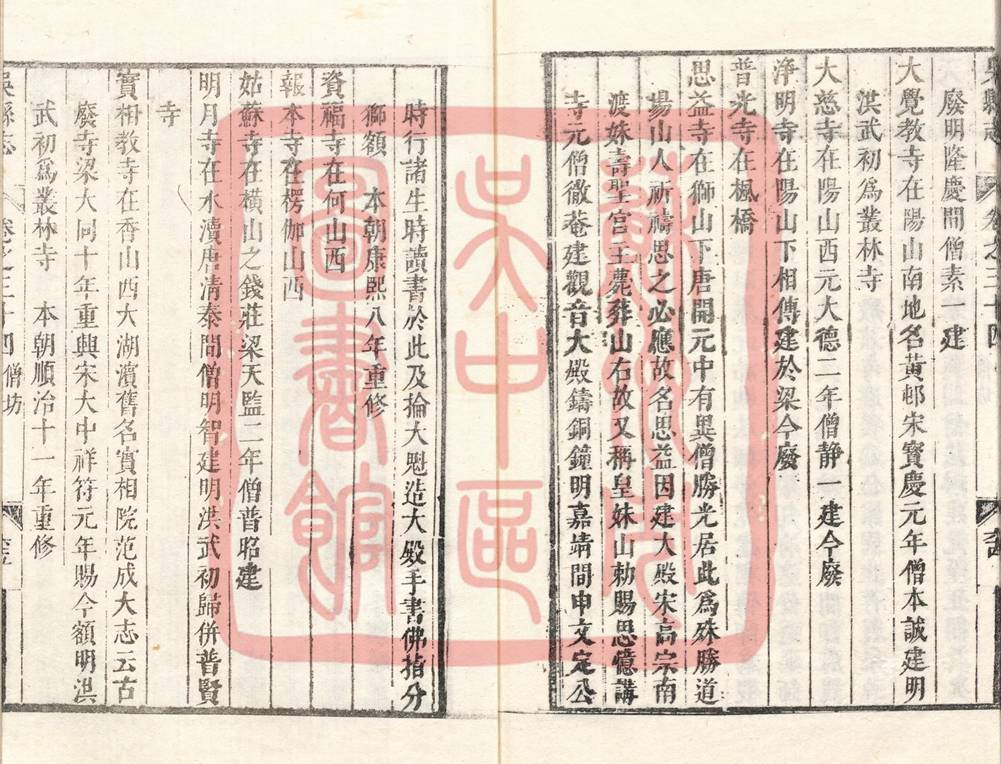 吳縣志 卷之三十四 僧坊
廢明隆慶間僧素一建
大覺教寺在陽山南地名黃邨宋寶慶元年僧本誠建明
洪武初爲叢林寺
大慈寺在陽山西元大德二年僧靜一建今廢
淨明寺在陽山下相傳建於梁今廢
普光寺在楓橋
思益寺在獅山下唐開元中有異僧勝光居此爲殊勝道
場山人祈禱思之必應故名思益因建大殿宋高宗南
渡妹壽聖宫主薨葬山右故又稱皇妹山勅賜思憶講
寺元僧徹菴建觀音大殿鑄銅鐘明嘉靖間申文定公
時行諸生時讀書於此及掄大魁造大殿手書佛指分
獅額 本朝康熙八年重修
資福寺在何山西
報本寺在楞伽山西
姑蘇寺在橫山之錢莊梁天監二年僧普昭建
明月寺在水瀆唐清泰間僧明智建明洪武初歸併普賢
寺
寶相教寺在香山西大湖濱舊名寶相院范成大志云古
廢寺梁大同十年重興宋大中祥符元年賜今額明洪
武初爲叢林寺 本朝順治十一年重修
吳縣志 卷之三十四 僧坊
蘇州市吳中區圖書館